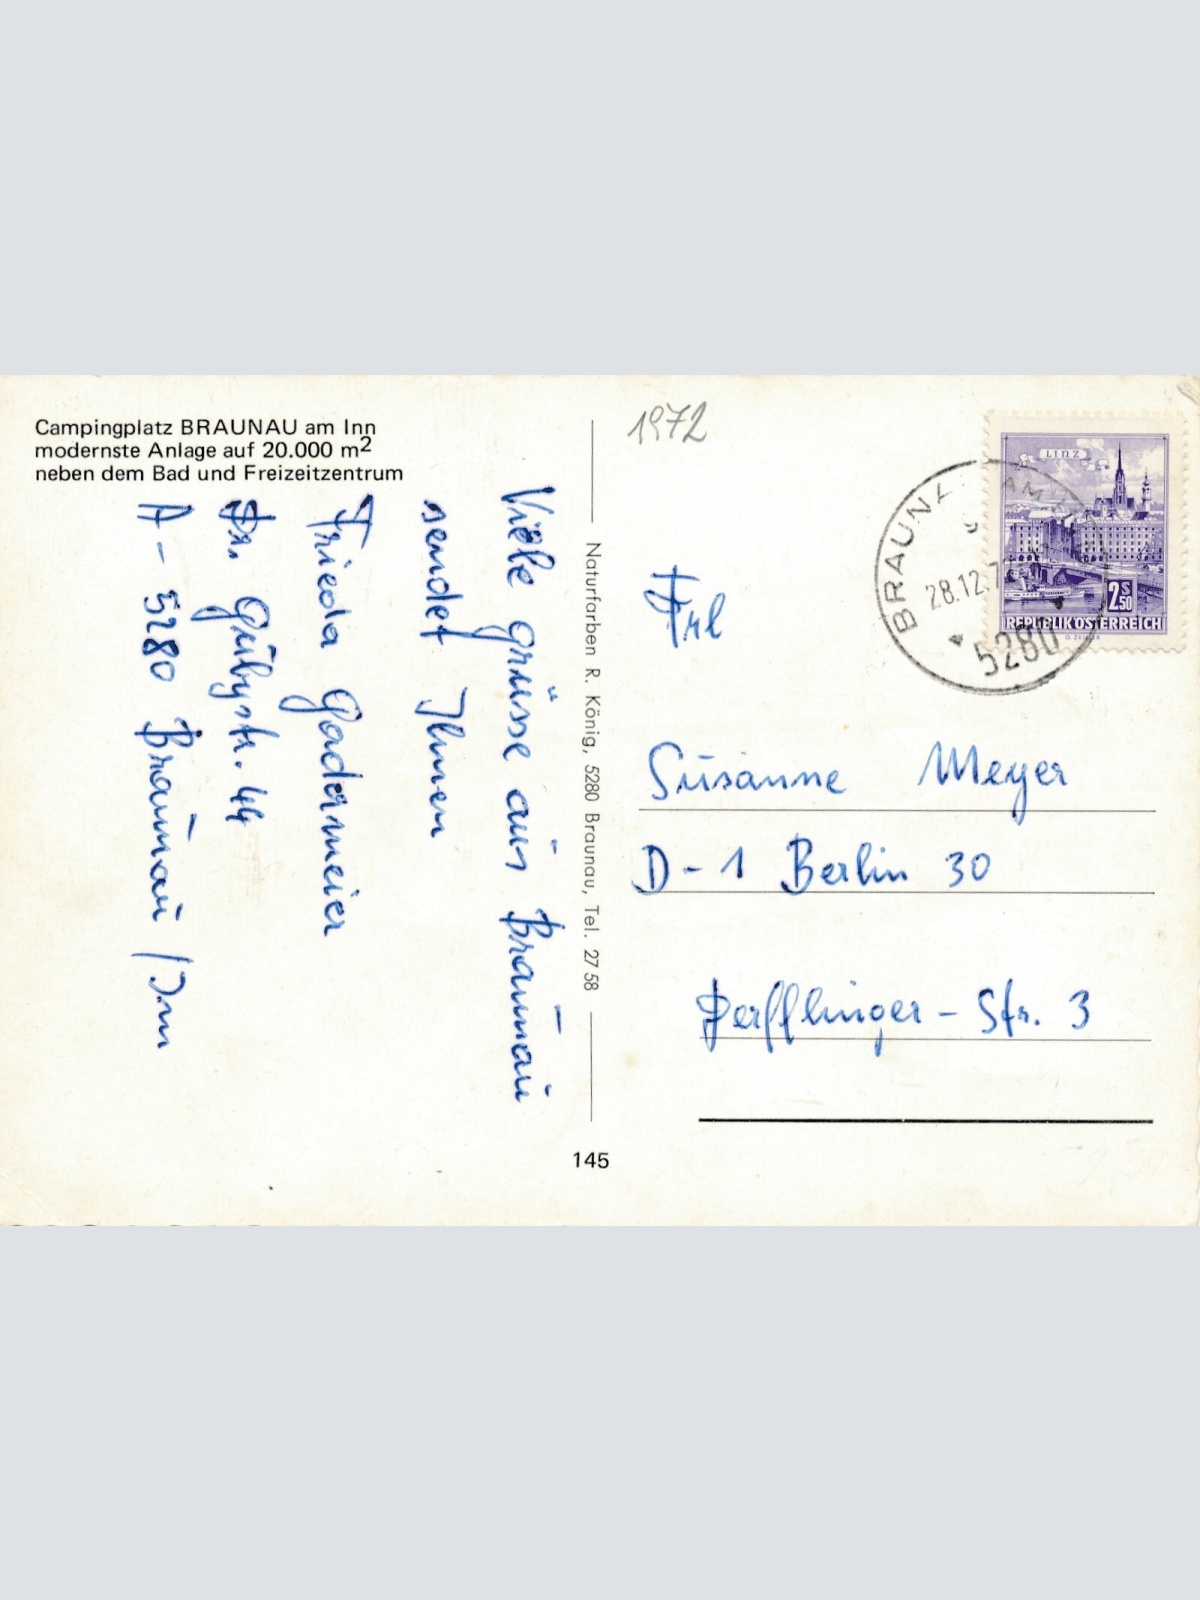 Campingplatz BRAUNAU am Inn
modernste Anlage auf 20.000 m2
neben dem Bad und Freizeitzentrum
Viele Grüsse aus Braunau
sendet Ihnen
Frieda Gadermeier
Dr. Gübystr. 44
A - 5280 Braunau / Inn
Naturfarben R. König, 5280 Braunau, Tel. 27 58
145
1972
LINZ
2S50
REPUBLIK ÖSTERREICH
BRAUNA AM
28.12.7
5280
Frl
Susanne Meyer
D - 1 Berlin 30
Derfflinger - Str. 3